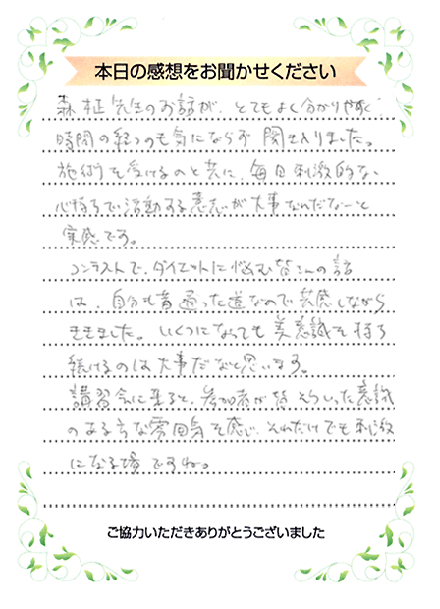 本日の感想をお聞かせください
森柾先生のお話が、とてもよく分かりやすく、
時間の経つのも気にならず 聞き入りました。
施術を受けるのと共に、毎日刺激的な、
心持ちで活動する意志が大事なんだなーと
実感です。
コンテストで、ダイエットに悩む皆さんの話
は、自分も昔通った道なので共感しながら
ききました。いくつになっても美意識を持ち
続けるのは大事だなと思います。
講習会に来ると、参加者が皆そういった意識
のある方な雰囲気を感じ、それだけでも刺激
になる場ですね。
ご協力いただきありがとうございました